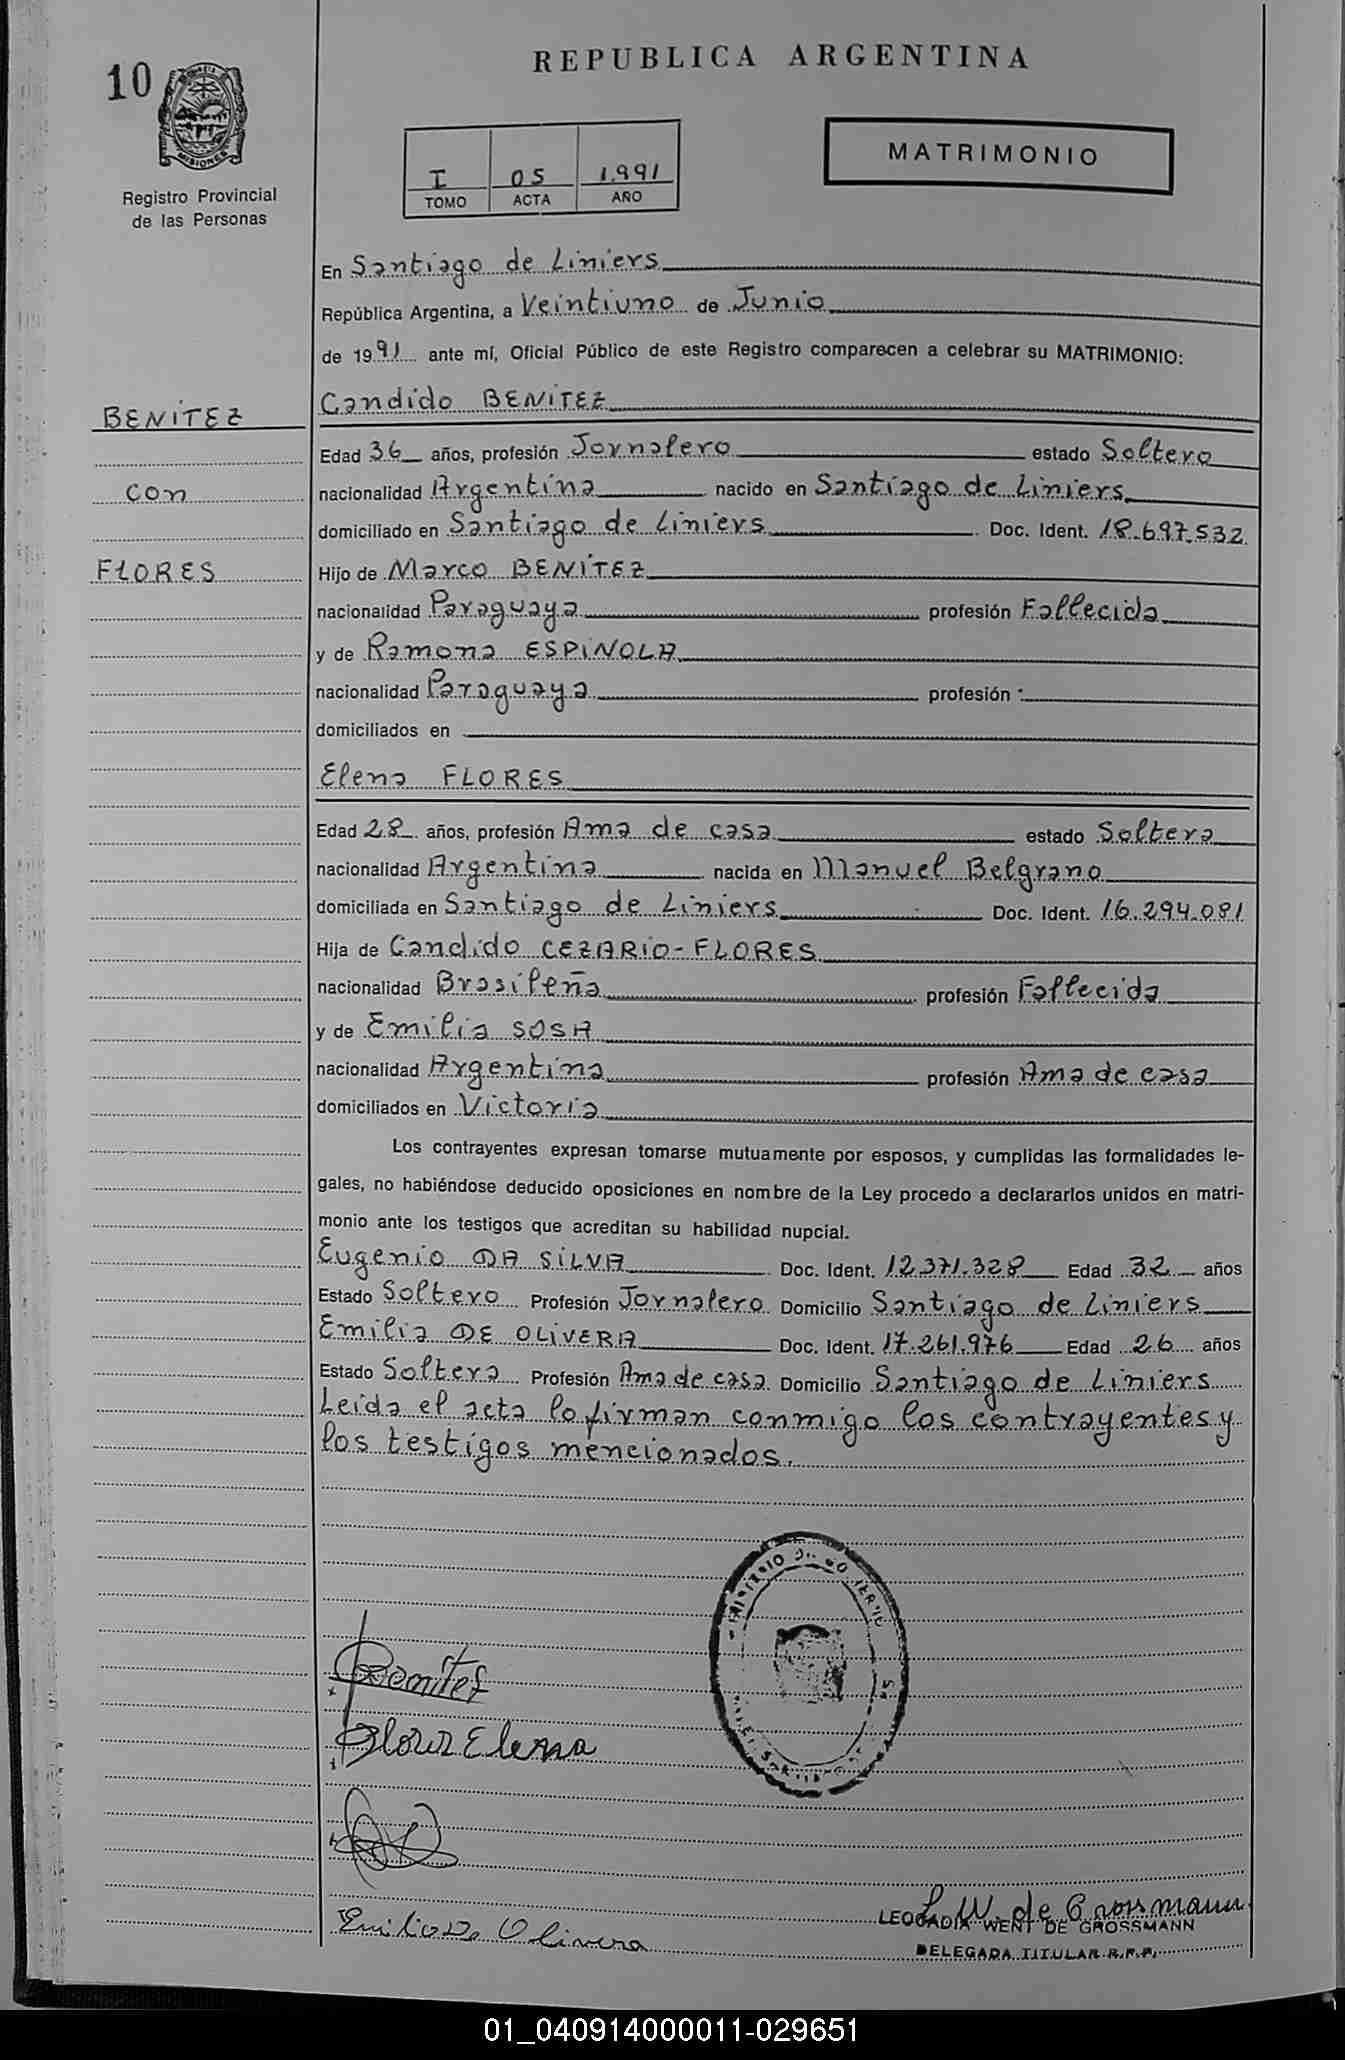 REPUBLICA ARGENTINA
10
MISIONES
Registro Provincial
de las Personas
I 05 1.991
TOMO ACTA AÑO
MATRIMONIO
En Santiago de Liniers
República Argentina, a Veintiuno de Junio
de 1991 ante mí, Oficial Público de este Registro comparecen a celebrar su MATRIMONIO:
Candido BENITEZ
BENITEZ
Edad 36 años, profesión Jornalero estado Soltero
con nacionalidad Argentina nacido en Santiago de Liniers
domiciliado en Santiago de Liniers Doc. Ident. 18.697.532
FLORES Hijo de Marco BENITEZ
nacionalidad Paraguaya profesión Fallecida
y de Ramona ESPINOLA
nacionalidad Paraguaya profesión
domiciliados en
Elena FLORES
Edad 28 años, profesión Ama de casa estado Soltera
nacionalidad Argentina nacida en Manuel Belgrano
domiciliada en Santiago de Liniers Doc. Ident. 16.294.081
Hija de Candido CEZARIO-FLORES
nacionalidad Brasileña profesión Fallecida
y de Emilia SOSA
nacionalidad Argentina profesión Ama de casa
domiciliados en Victoria
Los contrayentes expresan tomarse mutuamente por esposos, y cumplidas las formalidades le-
gales, no habiéndose deducido oposiciones en nombre de la Ley procedo a declararlos unidos en matri-
monio ante los testigos que acreditan su habilidad nupcial.
Eugenio DA SILVA Doc. Ident. 12.371.328 Edad 32 años
Estado Soltero Profesión Jornalero Domicilio Santiago de Liniers
Emilia DE OLIVERA Doc. Ident. 17.261.976 Edad 26 años
Estado Soltera Profesión Ama de casa Domicilio Santiago de Liniers
Leída el acta lo firman conmigo los contrayentes y
los testigos mencionados.
Benites
Flores Elena
Emilia De Olivera
L. W. de Grossmann
LEOCADIA WENT DE GROSSMANN
DELEGADA TITULAR R.P.P.
01_040914000011-029651